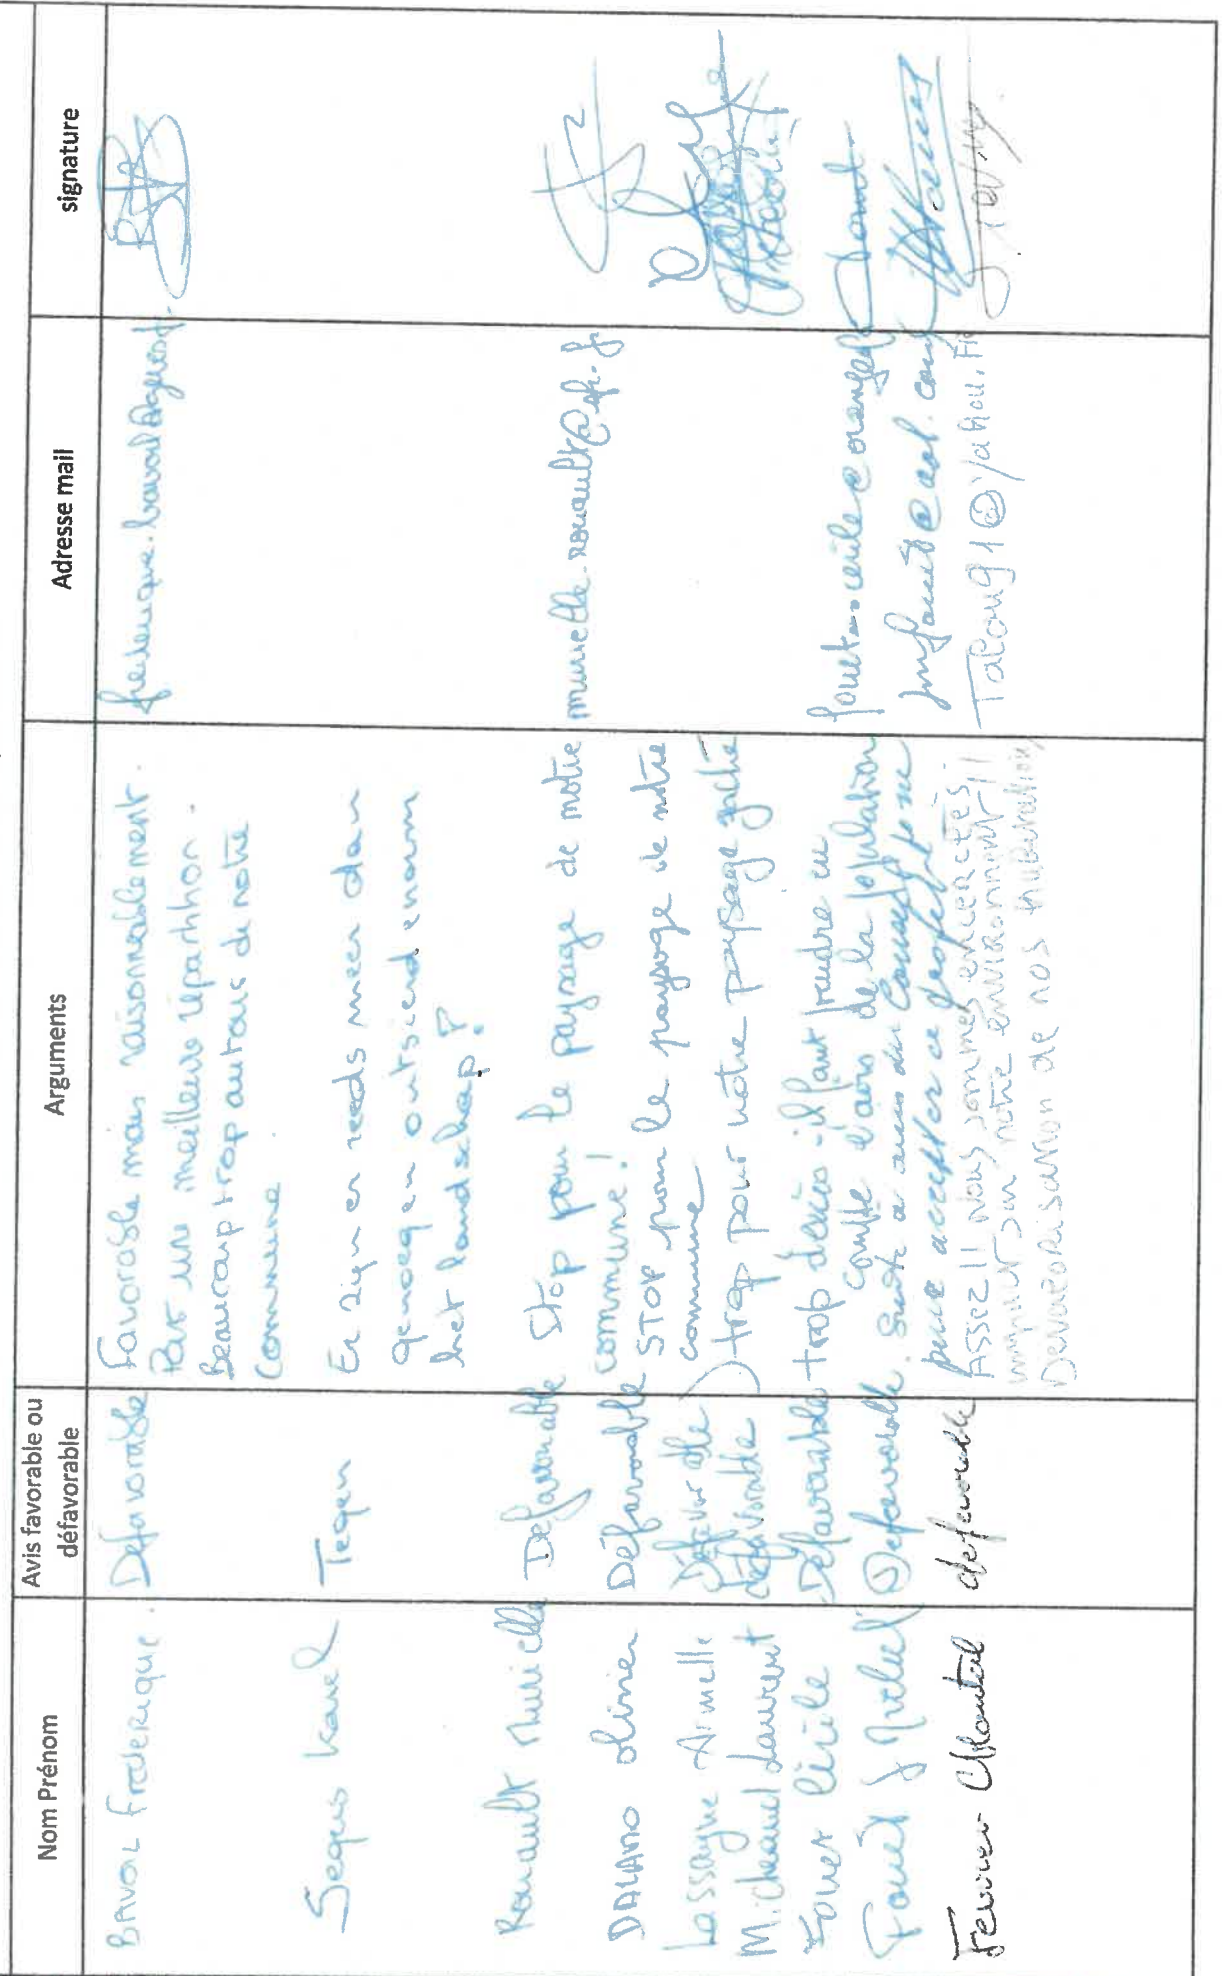 Nom Prénom
Avis favorable ou
défavorable
Arguments
Adresse mail
signature
BAVOIL Frédérique.
Défavorable
Favorable mais raisonnablement.
Par une meilleure répartition.
Beaucoup trop autour de notre
Commune
Segers Karel
Tegen
Er zijn er reeds meer dan
genoeg en ontsierd enorm
het landschap!
Rouault Murielle
Défavorable
Stop pour le paysage de notre
commune!
murielle.rouault@
DALAMO olivier
Défavorable
STOP pour le paysage de notre
commune
Lassayne Armelle
Défavorable
Micheaud Laurent
défavorable
trop pour notre paysage gâché
Fouet Cécile
Défavorable
trop déçus - il faut prendre en
compte l'avis de la population
Fouet J Michel
Défavorable.
pour accepter ce
jmfouet@aol.com
Ferrier Chantal
defavorable
ASSEZ!! Nous sommes encerclés.
impact sur notre environnement!!
Dévalorisation de nos habitations